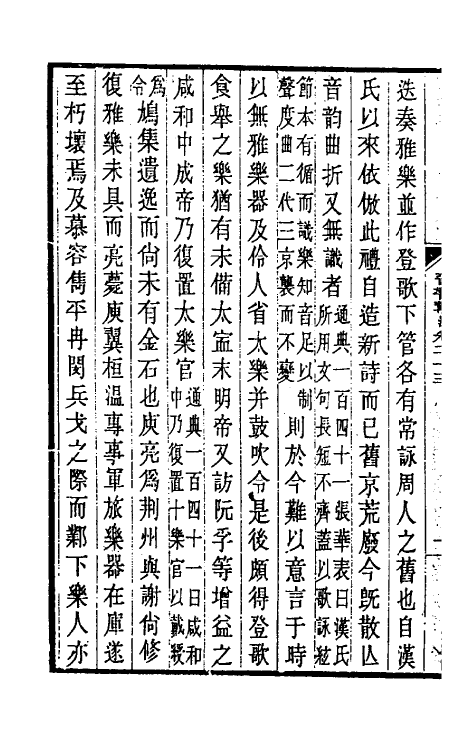 迭奏雅樂並作登歌下管各有常詠周人之舊也自漢
氏以來依倣此禮自造新詩而已舊京荒廢今旣散亾
音韵曲折又無識者通典一百四十一張華表曰漢氏
所用文句長短不齊蓋以歌詠絃
節本有循而識樂知音足以制
聲度曲二代三京襲而不變則於今難以意言于時
以無雅樂器及伶人省太樂并鼓吹令是後頗得登歌
食舉之樂猶有未備太寍末明帝又訪阮孚等增益之
咸和中成帝乃復置太樂官通典一百四十一曰咸和
中乃復置十樂官以戴綬
爲
令鳩集遺逸而尙未有金石也庾亮爲荆州與謝尙修
復雅樂未具而亮薨庾翼桓溫專事軍旅樂器在庫遂
至朽壞焉及慕容儁平冉閔兵戈之際而鄴下樂人亦